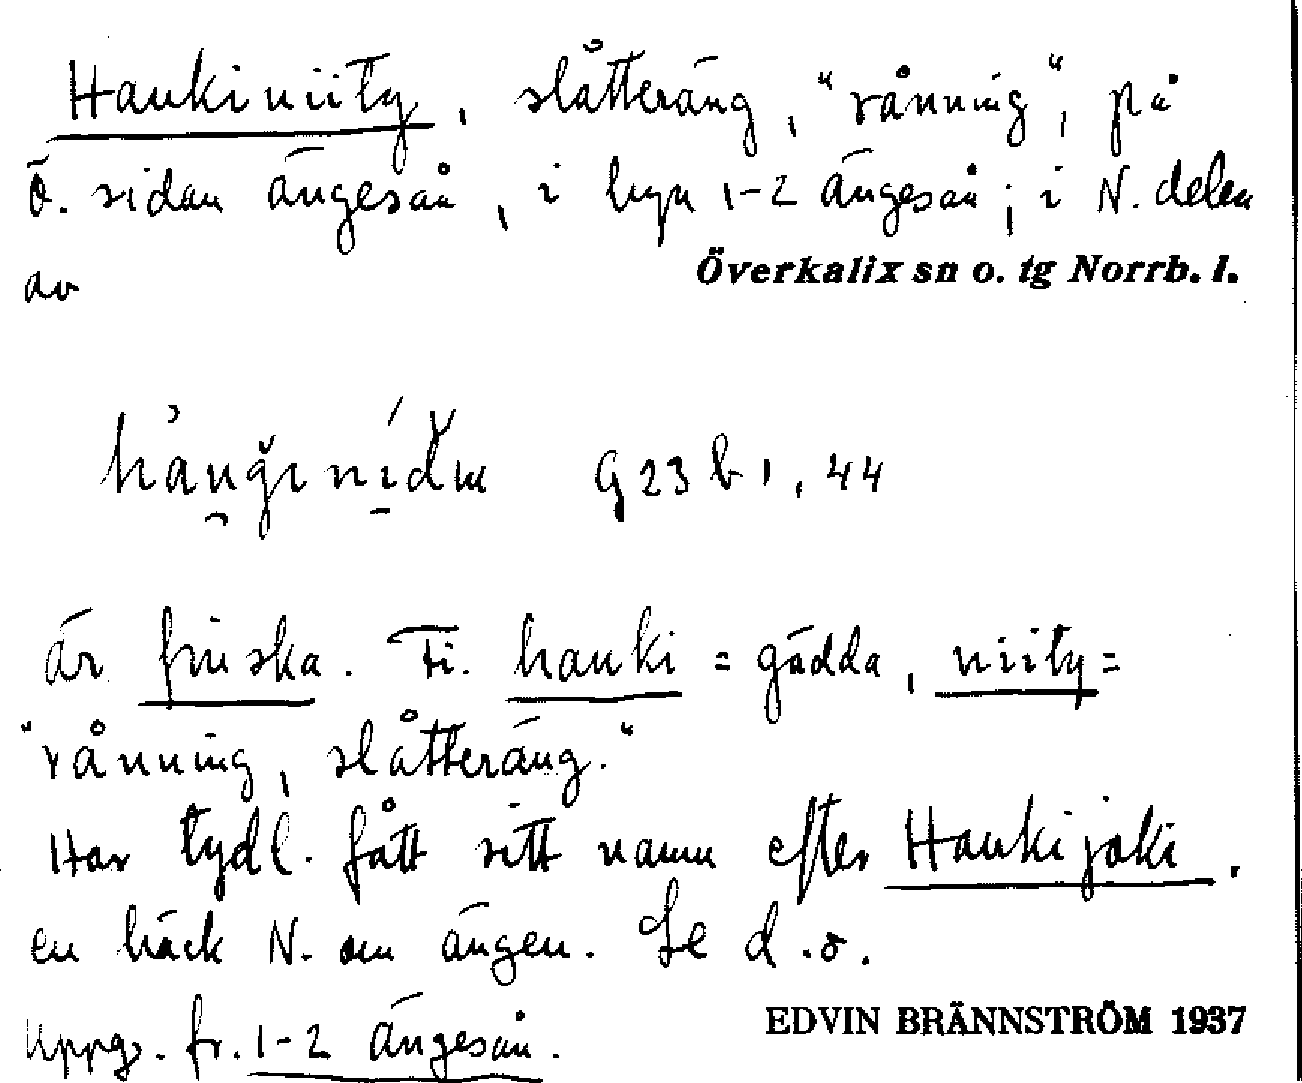 Haukiniity, slåtteräng, "rånning", på
ö. sidan ängesån, i byn 1-2 ängesån; i N. delen
av
Överkalix sn o. tg Norrb. l.
G 23 b 1, 44
är finska. Fi. hauki = gädda, niity =
"rånning, slåtteräng."
Har tydl. fått sitt namn efter Haukijoki,
en bäck N. om ängen. Se d.o.
Uppg. fr. 1-2 Ängesån.
EDVIN BRÄNNSTRÖM 1937